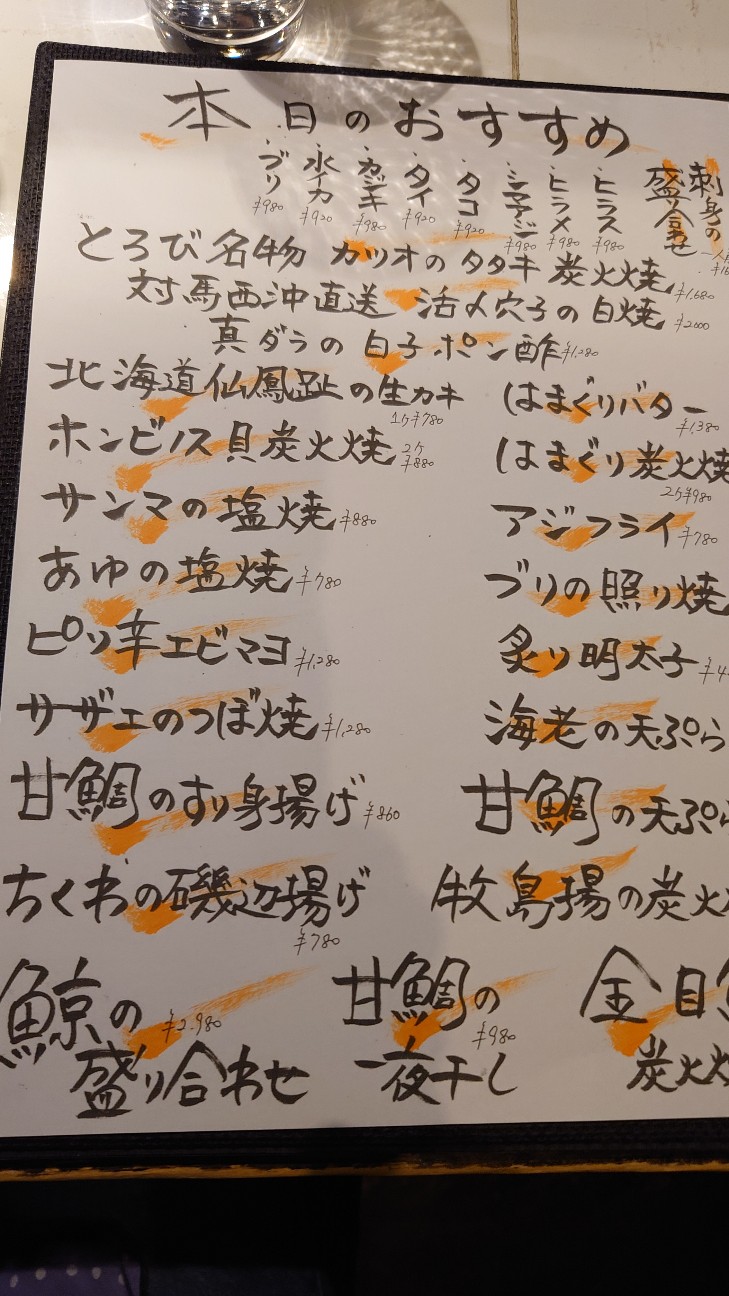 本日のおすすめ
刺身の盛り合わせ 一人前
・ヒラス ¥980
・ヒラメ ¥980
・シマアジ ¥980
・タコ ¥920
・タイ ¥920
・カジキ ¥980
・水イカ ¥920
・ブリ ¥980
とろび名物 カツオのタタキ 炭火焼 ¥1,680
対馬西沖直送 活〆穴子の白焼 ¥2000
真ダラの白子ポン酢 ¥1,280
北海道仙鳳趾の生カキ 1ケ¥780
はまぐりバター ¥1,380
ホンビノス貝炭火焼 2ケ ¥880
はまぐり炭火焼 2ケ¥980
サンマの塩焼 ¥880
アジフライ ¥780
あゆの塩焼 ¥780
ブリの照り焼
ピリ辛エビマヨ ¥1,280
炙り明太子
サザエのつぼ焼 ¥1,280
海老の天ぷら
甘鯛のすり身揚げ ¥860
甘鯛の天ぷら
ちくわの磯辺揚げ ¥780
牧島揚の炭火
鯨の盛り合わせ ¥2,980
甘鯛の一夜干し ¥980
金目
炭火焼